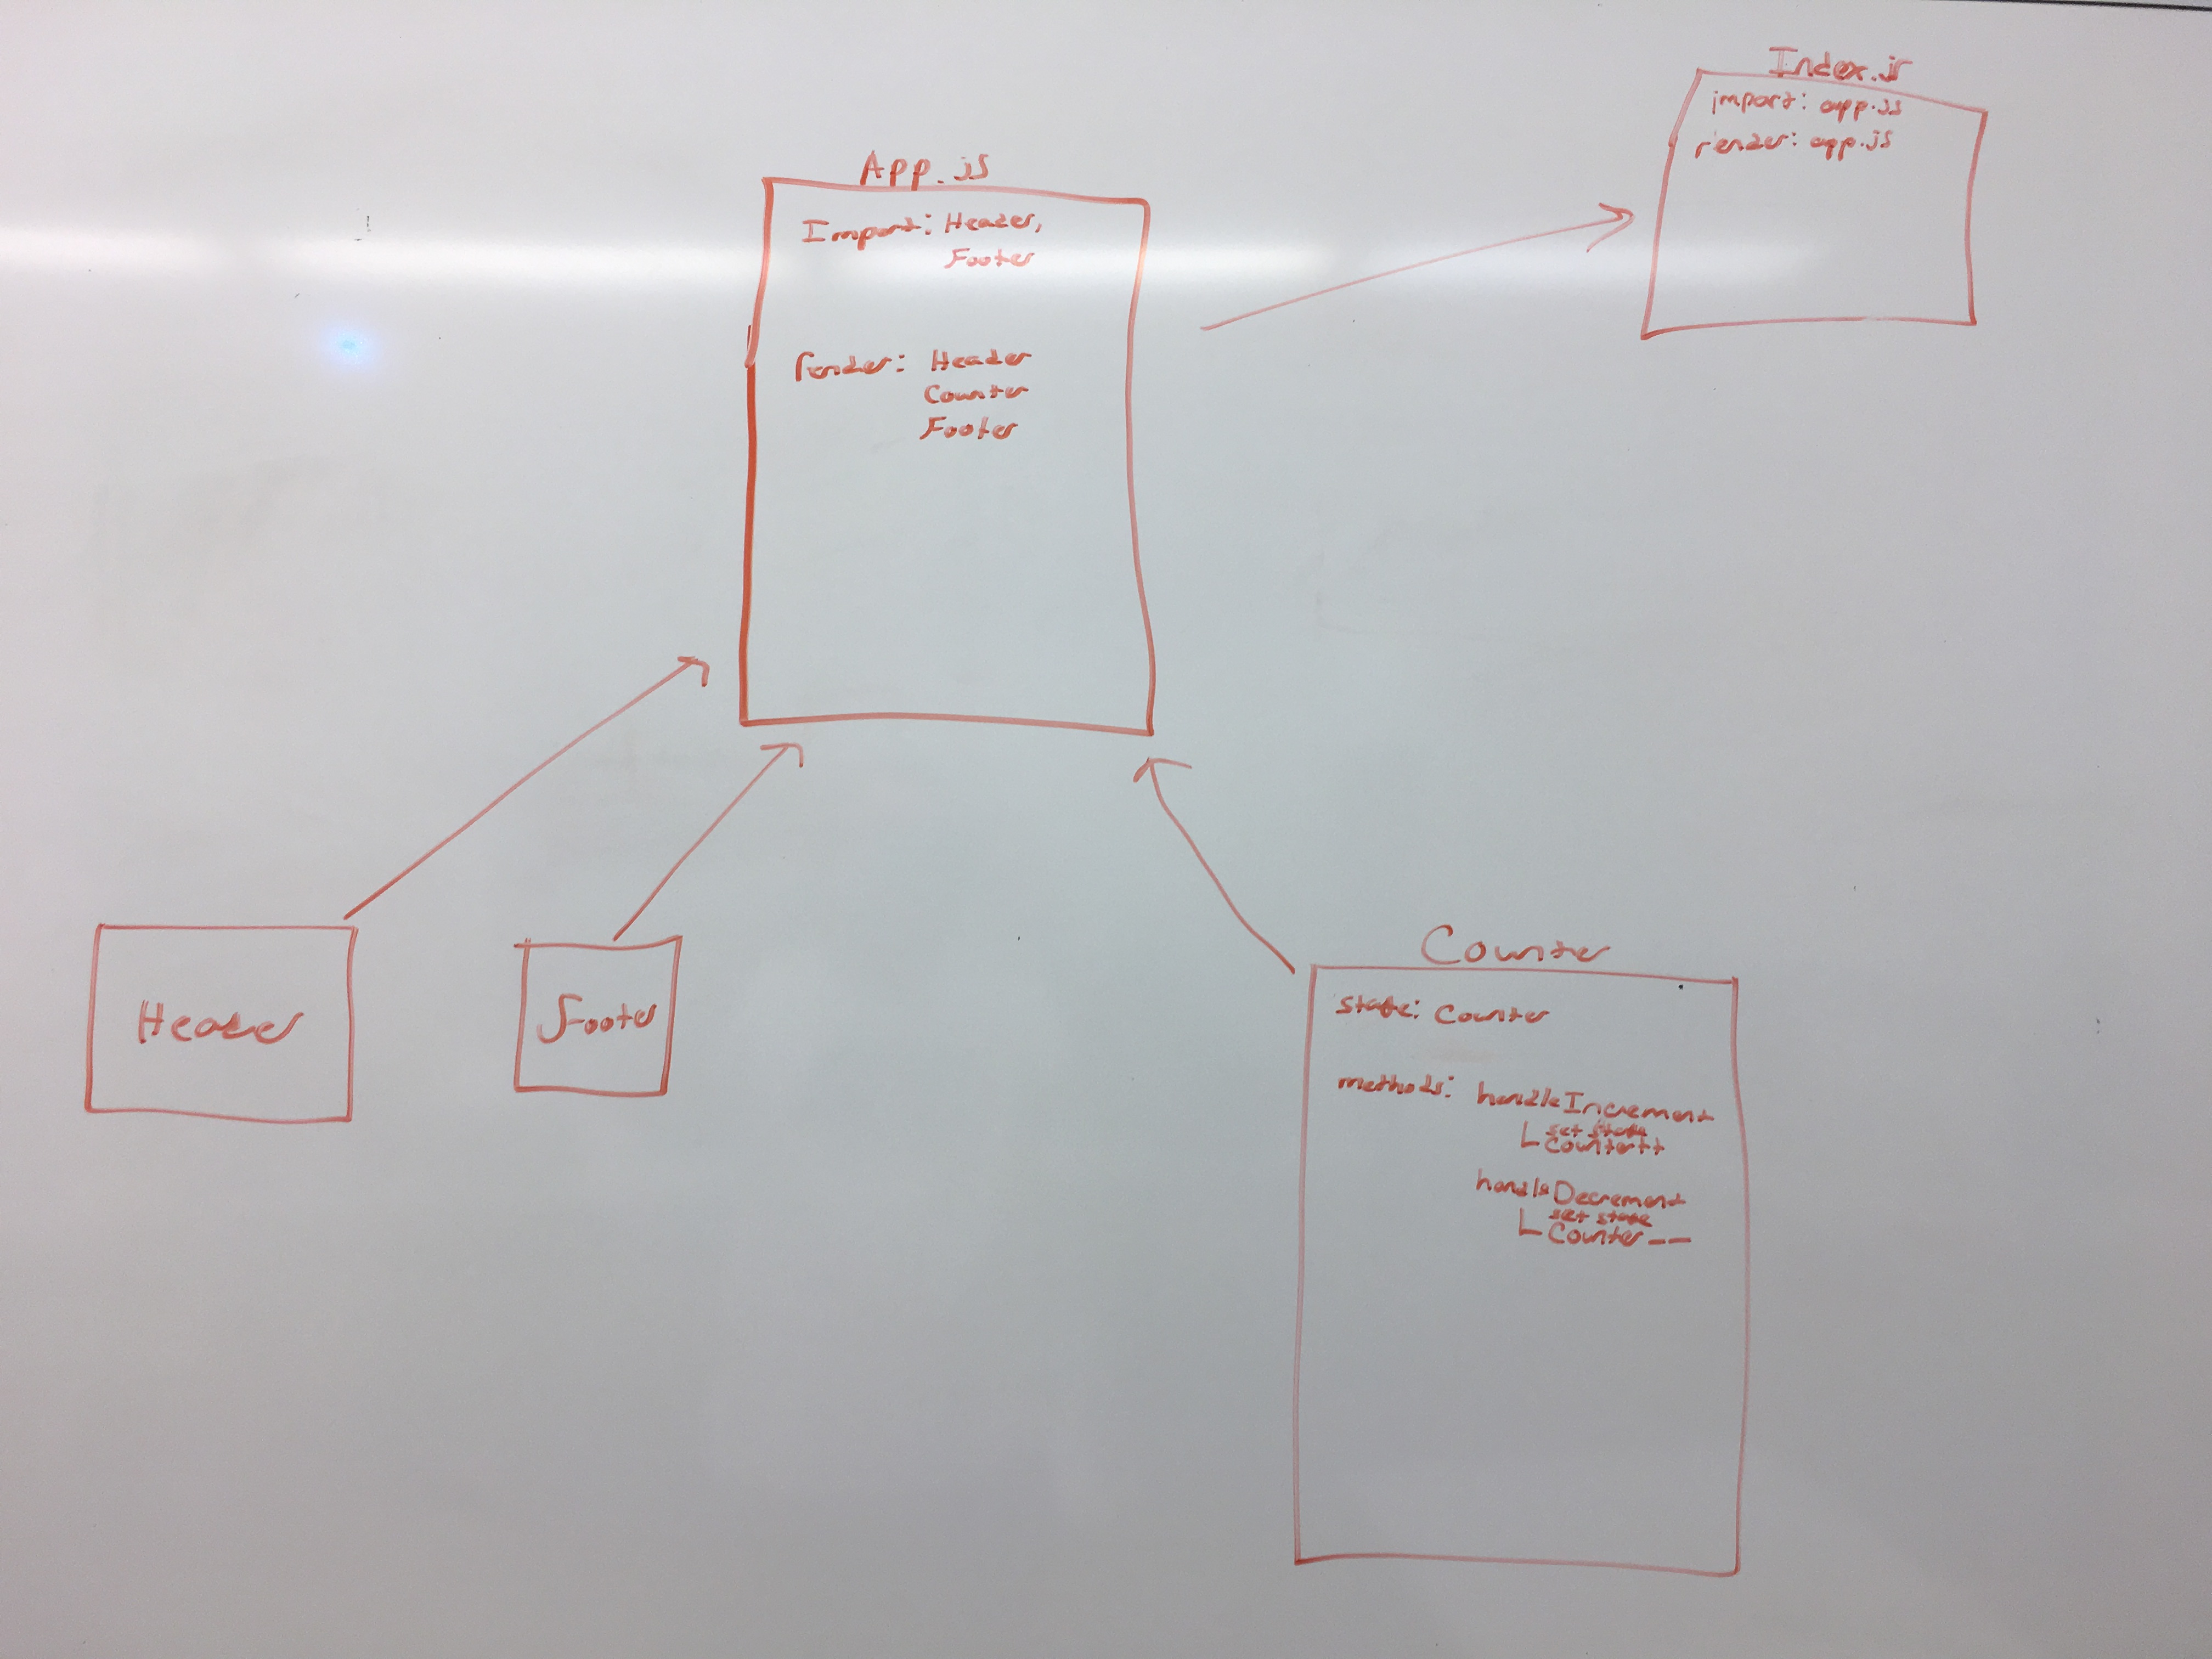 Index.js
import: app.js
render: app.js
App.js
Import: Header,
Footer
render: Header
Counter
Footer
Header
Footer
Counter
state: Counter
methods: handleIncrement
set state
Counter++
handleDecrement
set state
Counter--